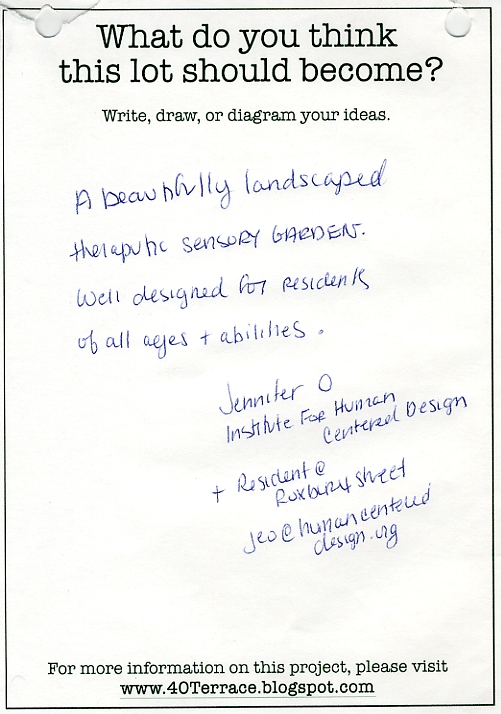 What do you think
this lot should become?
Write, draw, or diagram your ideas.
A beautifully landscaped
theraputic SENSORY GARDEN.
Well designed for residents
of all ages + abilities.
Jennifer O
Institute For Human
Centered Design
+ Resident @
Roxbury Street
jeo@humancentered
design.org
For more information on this project, please visit
www.40Terrace.blogspot.com